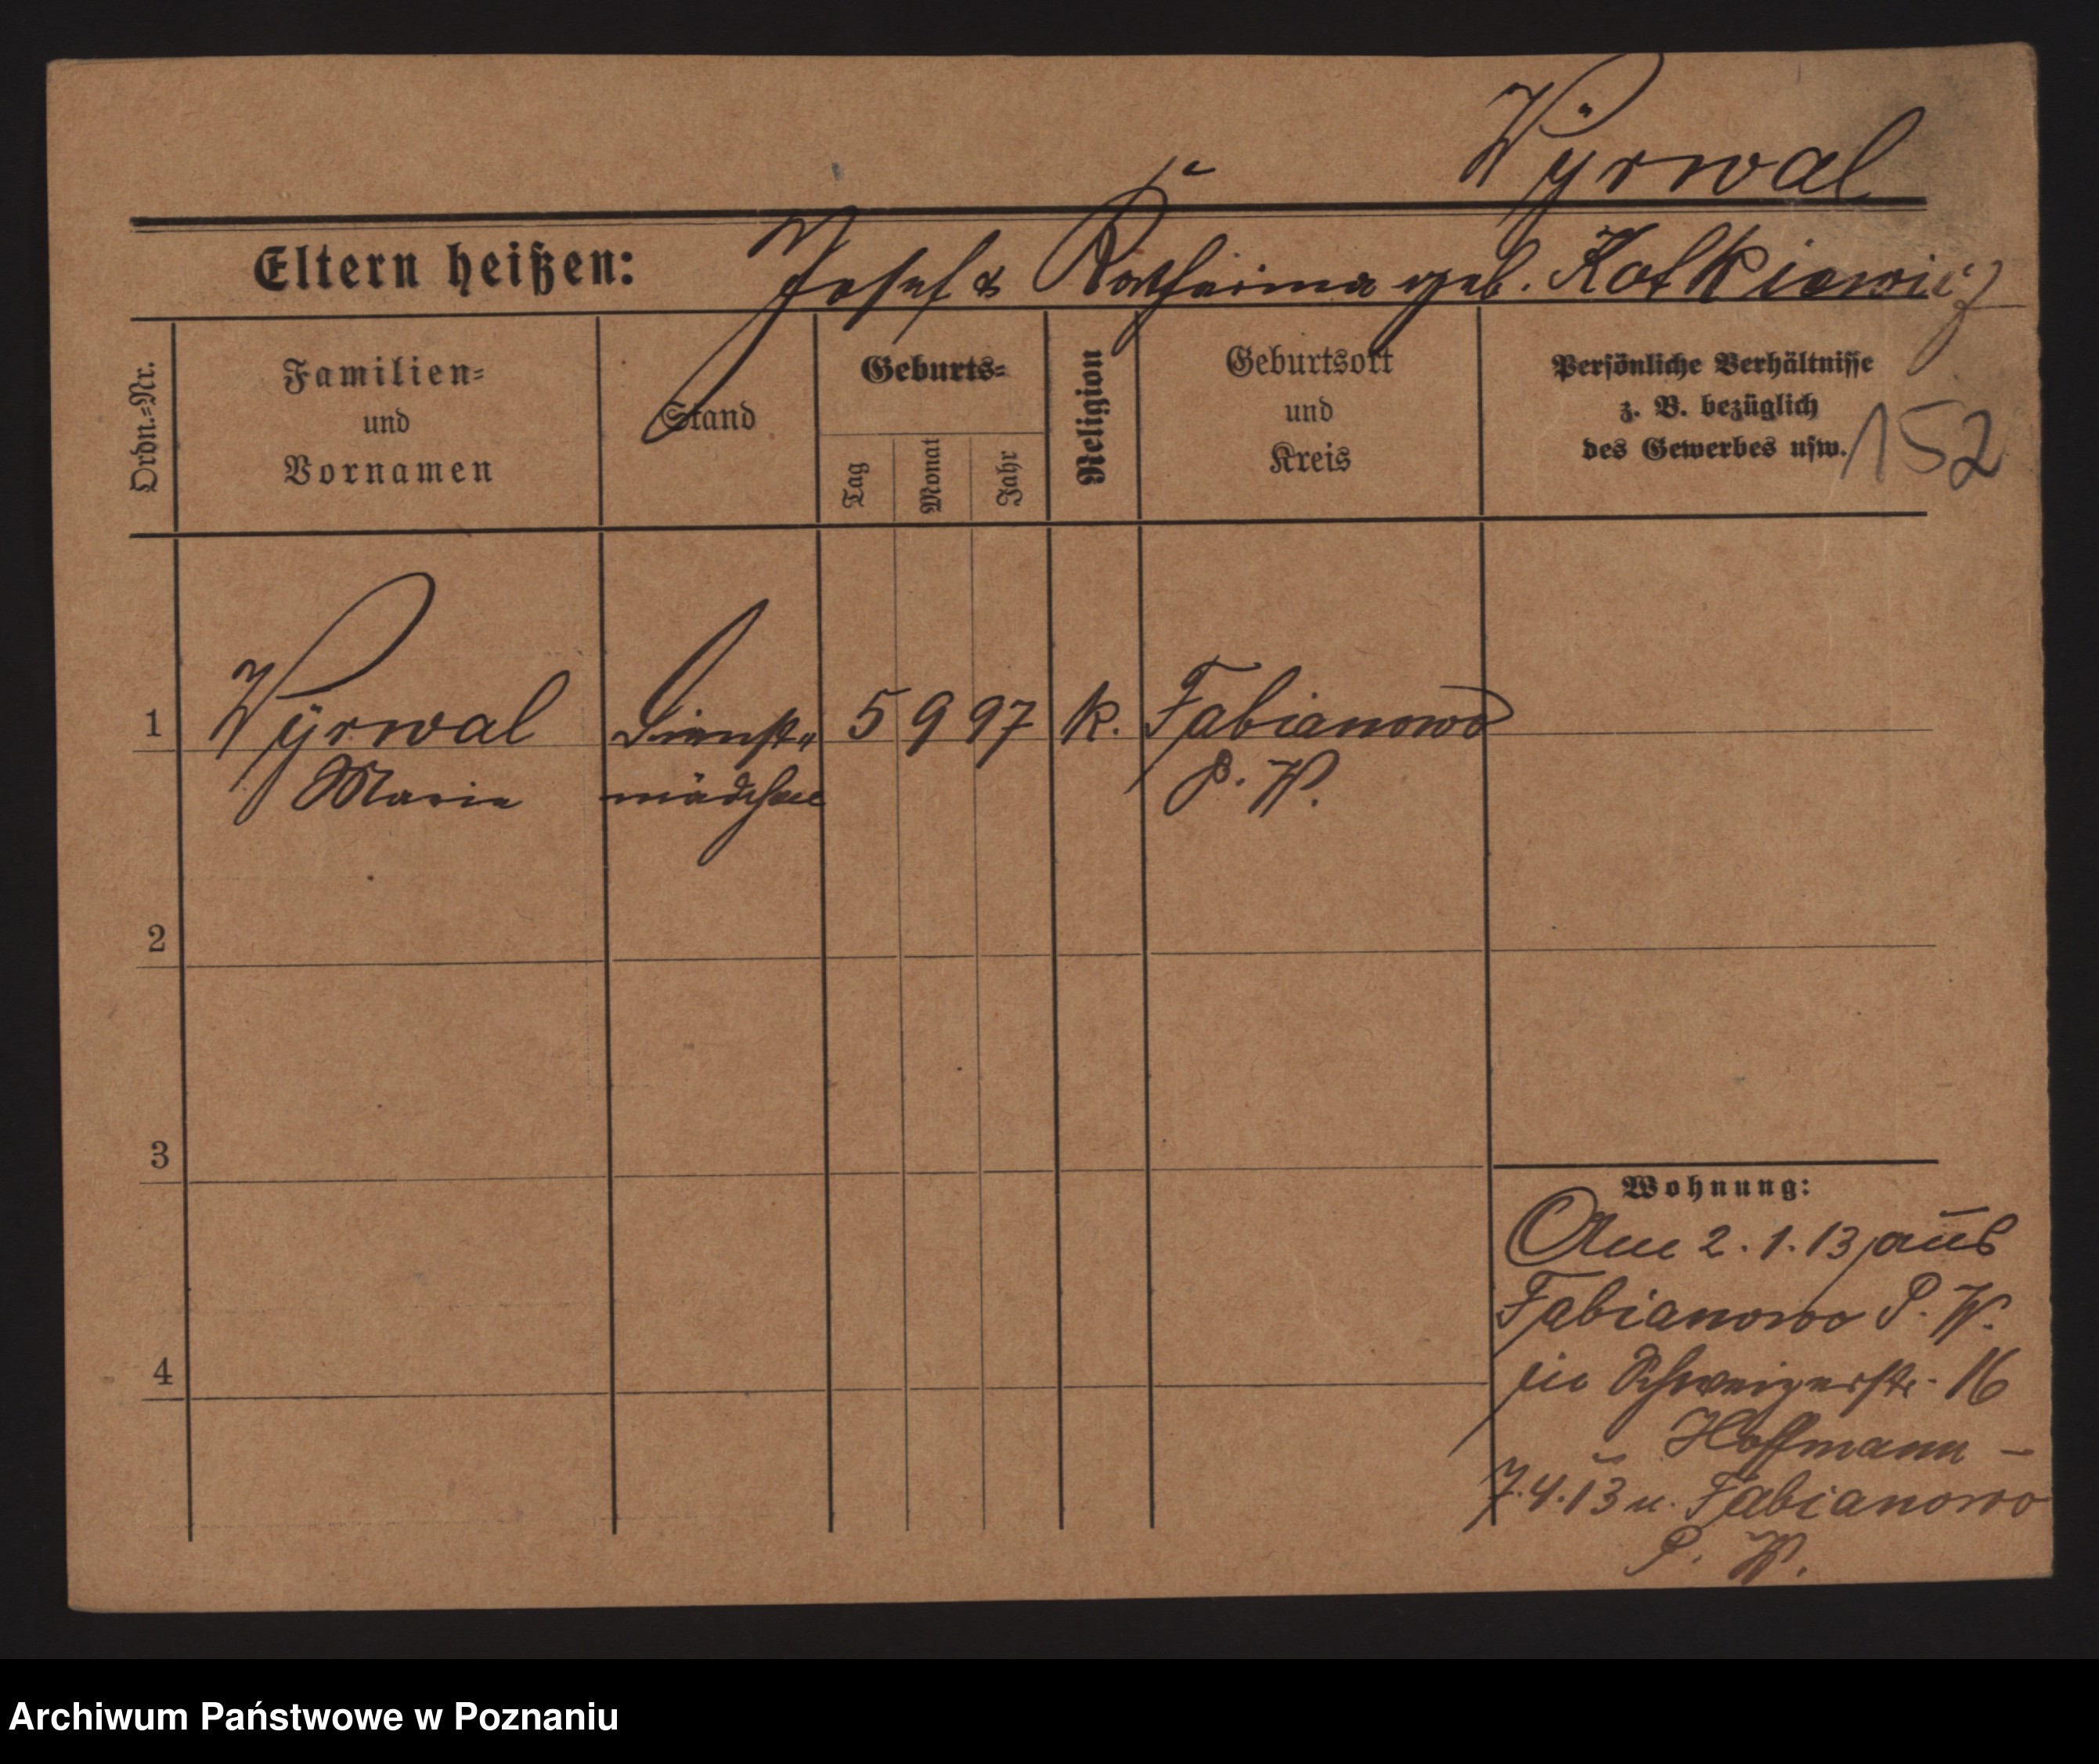 Wÿrwal
Eltern heißen: Josef & Katharina geb. Kotkiewicz
Ordn.-Nr.
Familien-
und
Vornamen
Stand
Geburts-
Tag
Monat
Jahr
Religion
Geburtsort
und
Kreis
Persönliche Verhältnisse
z. B. bezüglich
des Gewerbes usw.
152
1 Wÿrwal Dienst- 5 9 97 k. Fabianowo
Marie mädchen P. W.
2
3
4
Wohnung:
Am 2.1.13 aus
Fabianowo P. W.
in 16
Hoffmann –
7.4.13 n. Fabianowo
P. W.
Archiwum Państwowe w Poznaniu